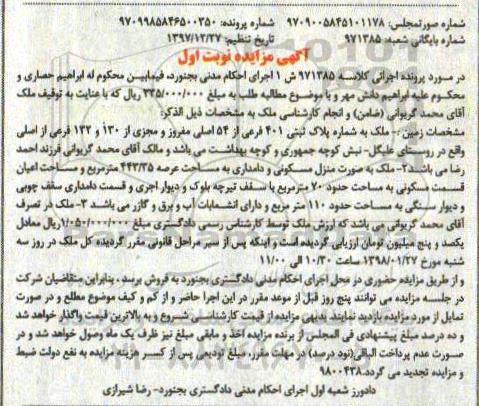 شماره صورتمجلس: ۹۷۰۹۰۰۵۸۴۵۱۰۱۱۷۸ شماره پرونده: ۹۷۰۹۹۸۵۸۴۶۵۰۰۳۵۰
شماره بایگانی شعبه: ۹۷۱۳۸۵ تاریخ تنظیم: ۱۳۹۷/۱۲/۲۷
آگهی مزایده نوبت اول
در مورد پرونده اجرائی کلاسه ۹۷۱۳۸۵ ش ۱ اجرای احکام مدنی بجنورد، فیمابین محکوم له ابراهیم حصاری و
محکوم علیه ابراهیم دانش مهر و با موضوع مطالبه طلب به مبلغ ۳۳۵/۰۰۰/۰۰۰ ریال که با عنایت به توقیف ملک
آقای محمد گریوانی (ضامن) و انجام کارشناسی ملک به مشخصات ذیل الذکر:
مشخصات زمین :- ملک به شماره پلاک ثبتی ۴۰۱ فرعی از ۵۴ اصلی مفروز و مجزی از ۱۳۰ و ۱۳۲ فرعی از اصلی
واقع در روستای علیگل- نبش کوچه جمهوری و کوچه بهداشت می باشد و مالک آقای محمد گریوانی فرزند احمد
رضا می باشد.۲- ملک به صورت منزل مسکونی و دامداری به مساحت عرصه ۴۴۳/۳۵ مترمربع و مساحت اعیان
قسمت مسکونی به مساحت حدود ۷۰ مترمربع با سقف تیرچه بلوک و دیوار آجری و قسمت دامداری سقف چوبی
و دیوار سنگی به مساحت حدود ۱۱۰ متر مربع و دارای انشعابات آب و برق و گازر می باشد ۳- ملک در تصرف
آقای محمد گریوانی می باشد که ارزش ملک توسط کارشناس رسمی دادگستری مبلغ ۱/۰۵۰/۰۰۰/۰۰۰ریال معادل
یکصد و پنج میلیون تومان ارزیابی گردیده است و اینکه پس از سیر مراحل قانونی مقرر گردیده کل ملک در روز سه
شنبه مورخ ۱۳۹۸/۰۱/۲۷ ساعت ۱۰/۳۰ الی ۱۱/۰۰
و از طریق مزایده حضوری در محل اجرای احکام مدنی دادگستری بجنورد به فروش برسد . بنابراین متقاضیان شرکت
در جلسه مزایده می توانند پنج روز قبل از موعد مقرر در این اجرا حاضر و از کم و کیف موضوع مطلع و در صورت
تمایل از مورد مزایده بازدید نمایند بدیهی مزایده از قیمت کارشناسی شروع و به بالاترین قیمت واگذار خواهد شد
و ده درصد مبلغ پیشنهادی فی المجلس از برنده مزایده اخذ و مابقی مبلغ نیز ظرف یک ماه وصول خواهد شد و در
صورت عدم پرداخت الباقی(نود درصد) در مهلت مقرر، مبلغ تودیعی پس از کسر هزینه مزایده به نفع دولت ضبط
و مزایده تجدید می گردد.۹۸۰۰۴۳۸
دادورز شعبه اول اجرای احکام مدنی دادگستری بجنورد- رضا شیرازی